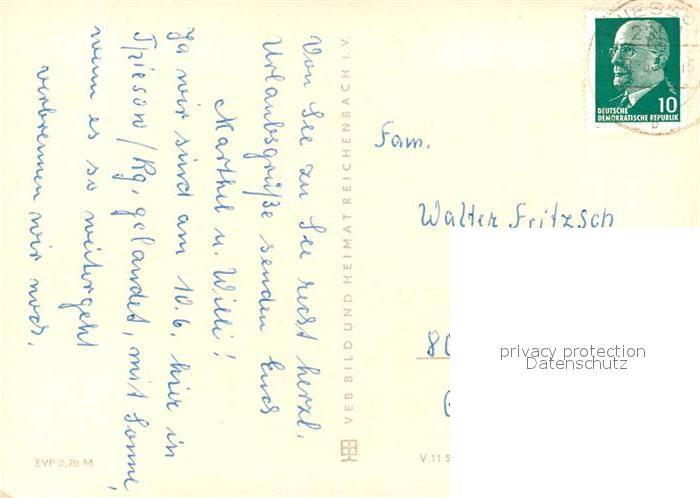 Von See zu See recht herzl.
Urlaubsgrüße senden Euch
Marthel u. Willi!
Ja wir sind am 10.6. hier in
Tpiesow/Rg. gelandet, mit Sonne,
wenn es so weitergeht
verbrennen wir noch.
EVP 0,20 M
VEB BILD UND HEIMAT REICHENBACH I.V.
V 11 5
10
DEUTSCHE
DEMOKRATISCHE REPUBLIK
Fam.
Walter Fritzsch
80
privacy protection
Datenschutz